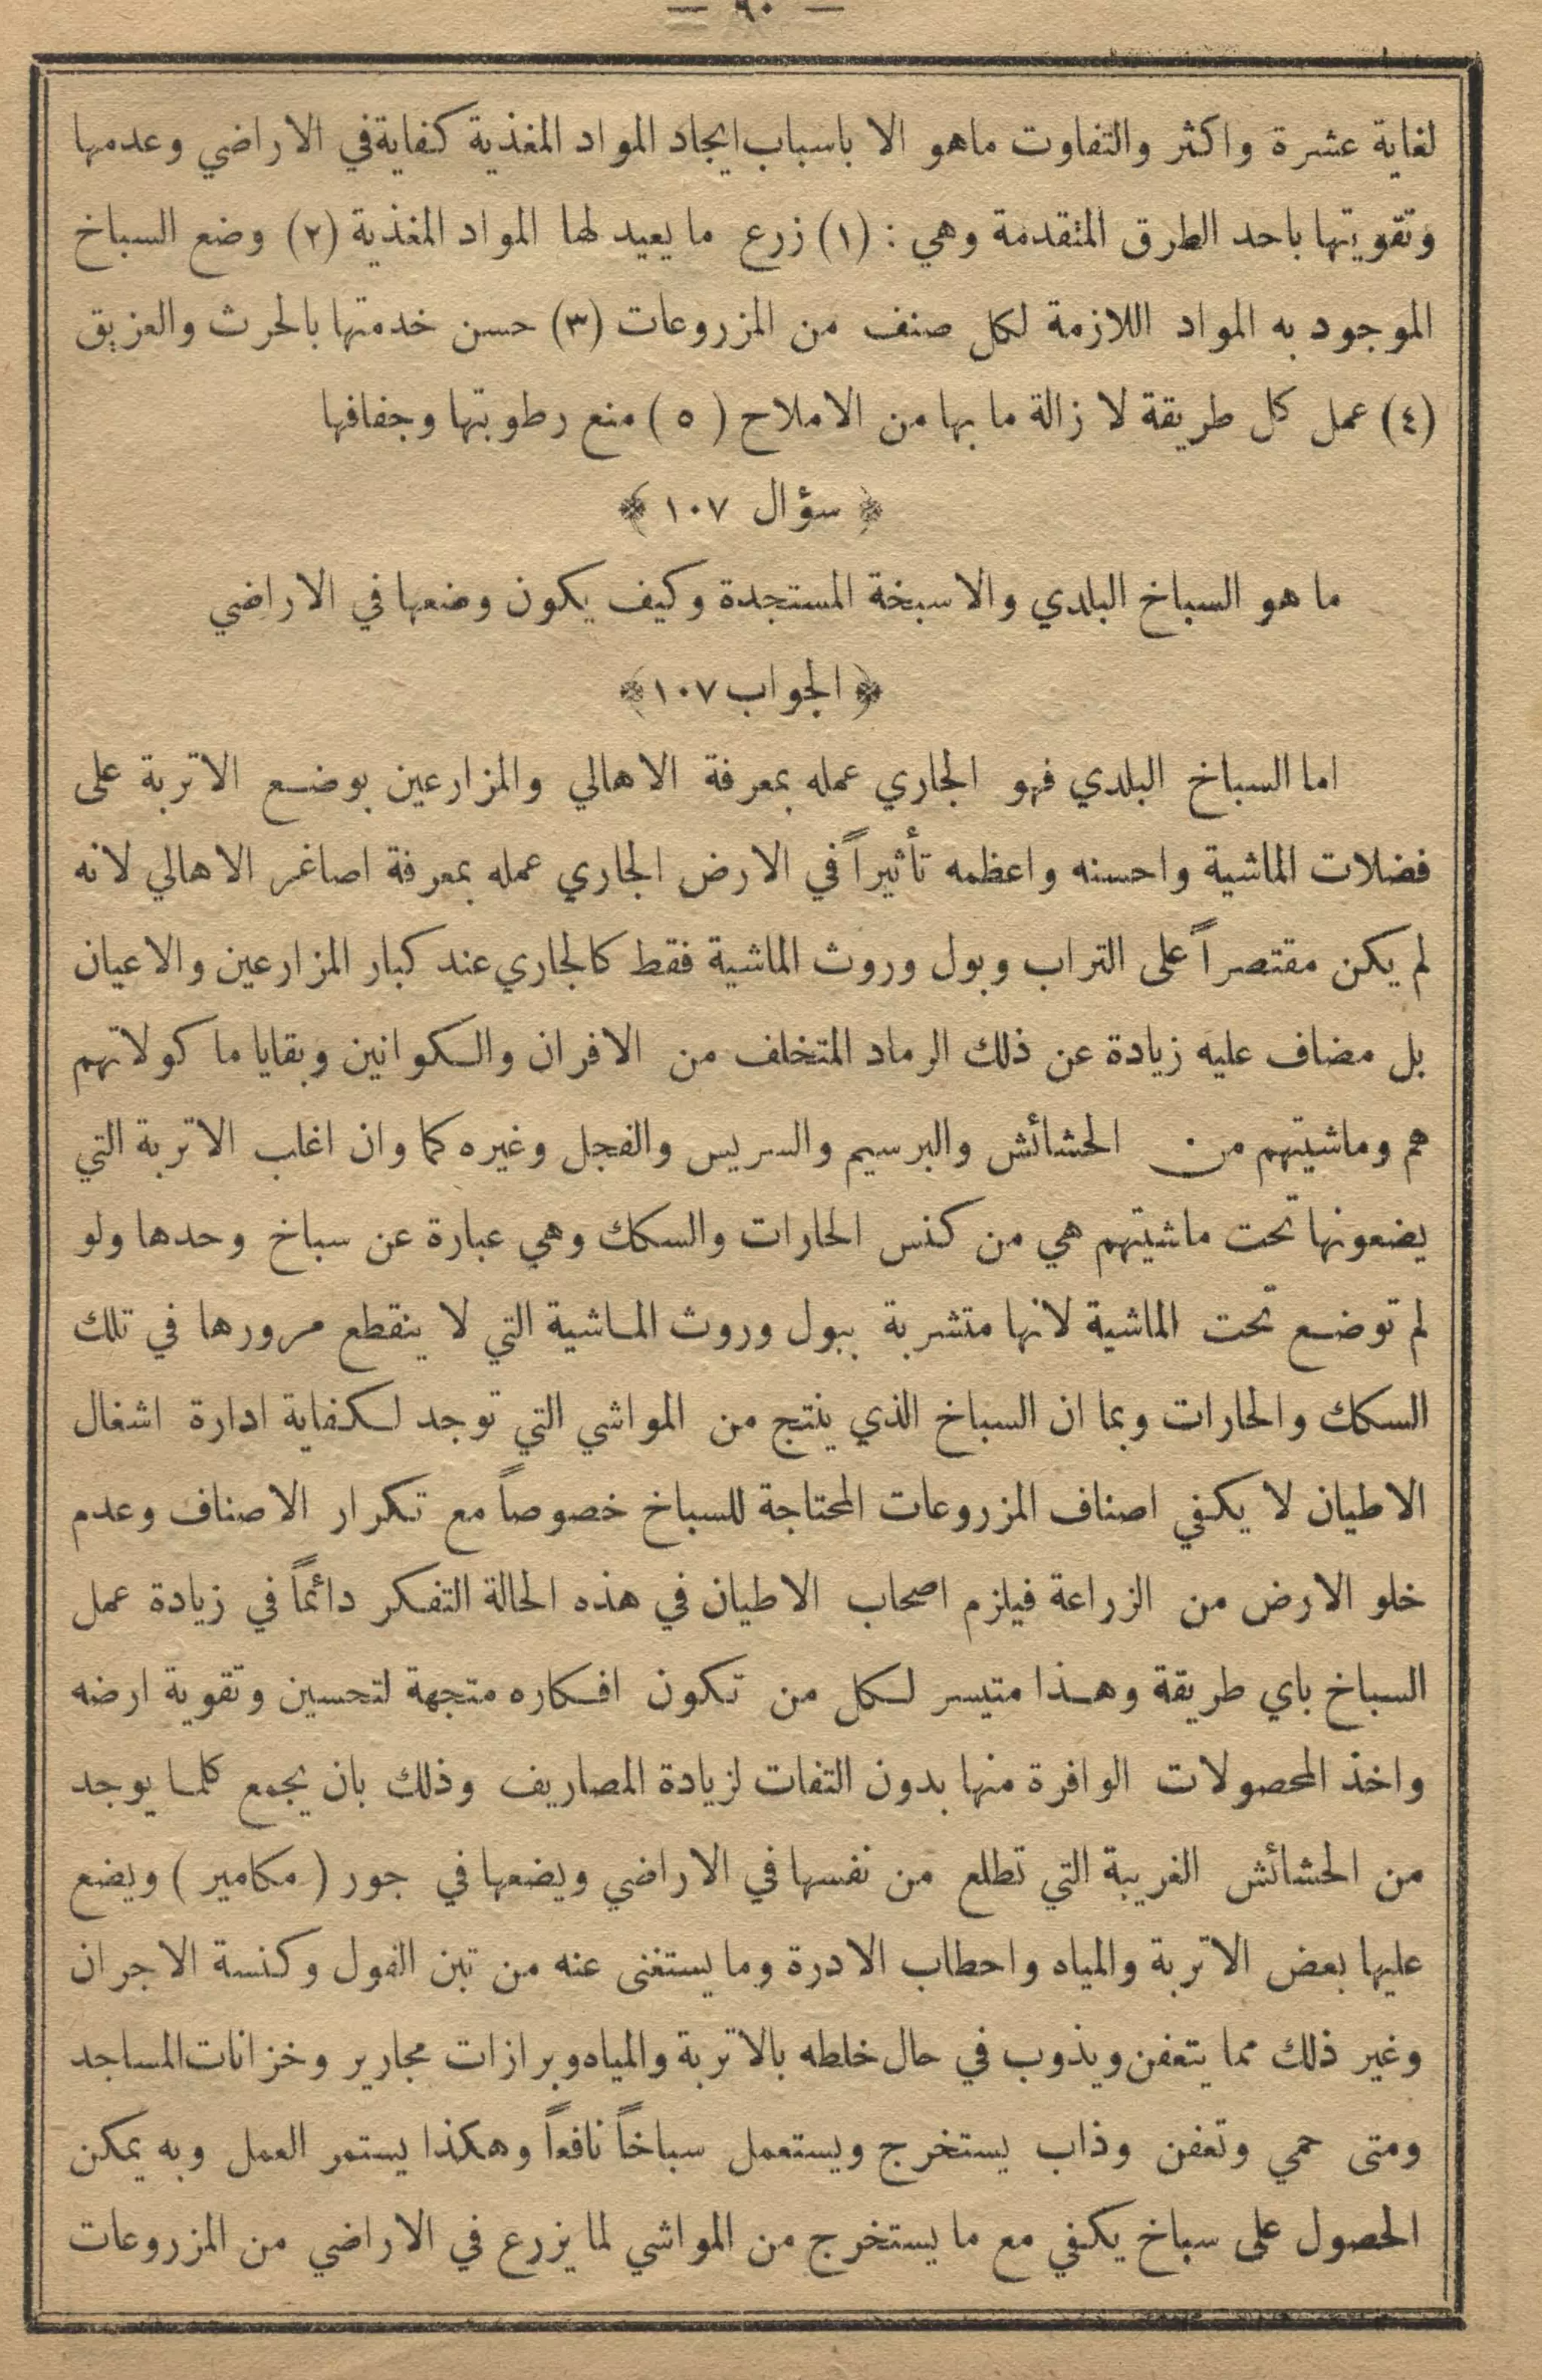 — ٩٠ —
لغاية عشرة واكثر والتفاوت ماهو الا باسباب ايجاد المواد المغذية كفاية في الاراضي وعدمها
وتقويتها باحد الطرق المتقدمة وهي : (١) زرع ما يعيد لها المواد المغذية (٢) وضع السباخ
الموجود به المواد اللازمة لكل صنف من المزروعات (٣) حسن خدمتها بالحرث والعزيق
(٤) عمل كل طريقة لا زالة ما بها من الاملاح (٥) منع رطوبتها وجفافها
﴿ سؤال ١٠٧ ﴾
ما هو السباخ البلدي والاسبخة المستجدة وكيف يكون وضعها في الاراضي
﴿ الجواب ١٠٧ ﴾
اما السباخ البلدي فهو الجاري عمله بمعرفة الاهالي والمزارعين بوضع الاتربة على
فضلات الماشية واحسنه واعظمه تأثيراً في الارض الجاري عمله بمعرفة اصاغر الاهالي لانه
لم يكن مقتصراً على التراب وبول وروث الماشية فقط كالجاري عند كبار المزارعين والاعيان
بل مضاف عليه زيادة عن ذلك الرماد المتخلف من الافران والكوانين وبقايا ماكولاتهم
هم وماشيتهم من الحشائش والبرسيم والسريس والفجل وغيره كما وان اغلب الاتربة التي
يضعونها تحت ماشيتهم هي من كنس الحارات والسكك وهي عبارة عن سباخ وحدها ولو
لم توضع تحت الماشية لانها متشربة ببول وروث الماشية التي لا ينقطع مرورها في تلك
السكك والحارات وبما ان السباخ الذي ينتج من المواشي التي توجد لكفاية ادارة اشغال
الاطيان لا يكفي اصناف المزروعات المحتاجة للسباخ خصوصاً مع تكرار الاصناف وعدم
خلو الارض من الزراعة فيلزم اصحاب الاطيان في هذه الحالة التفكر دائماً في زيادة عمل
السباخ باي طريقة وهذا متيسر لكل من تكون افكاره متجهة لتحسين وتقوية ارضه
واخذ المحصولات الوافرة منها بدون التفات لزيادة المصاريف وذلك بان يجمع كلما يوجد
من الحشائش الغريبة التي تطلع من نفسها في الاراضي ويضعها في جور ( مكامير ) ويضع
عليها بعض الاتربة والمياه واحطاب الادرة وما يستغنى عنه من تبن الفول وكنسة الاجران
وغير ذلك مما يتعفن ويذوب في حال خلطه بالاتربة والمياه وبرازات مجارير وخزانات المساجد
ومتى حمي وتعفن وذاب يستخرج ويستعمل سباخاً نافعاً وهكذا يستمر العمل وبه يمكن
الحصول على سباخ يكفي مع ما يستخرج من المواشي لما يزرع في الاراضي من المزروعات